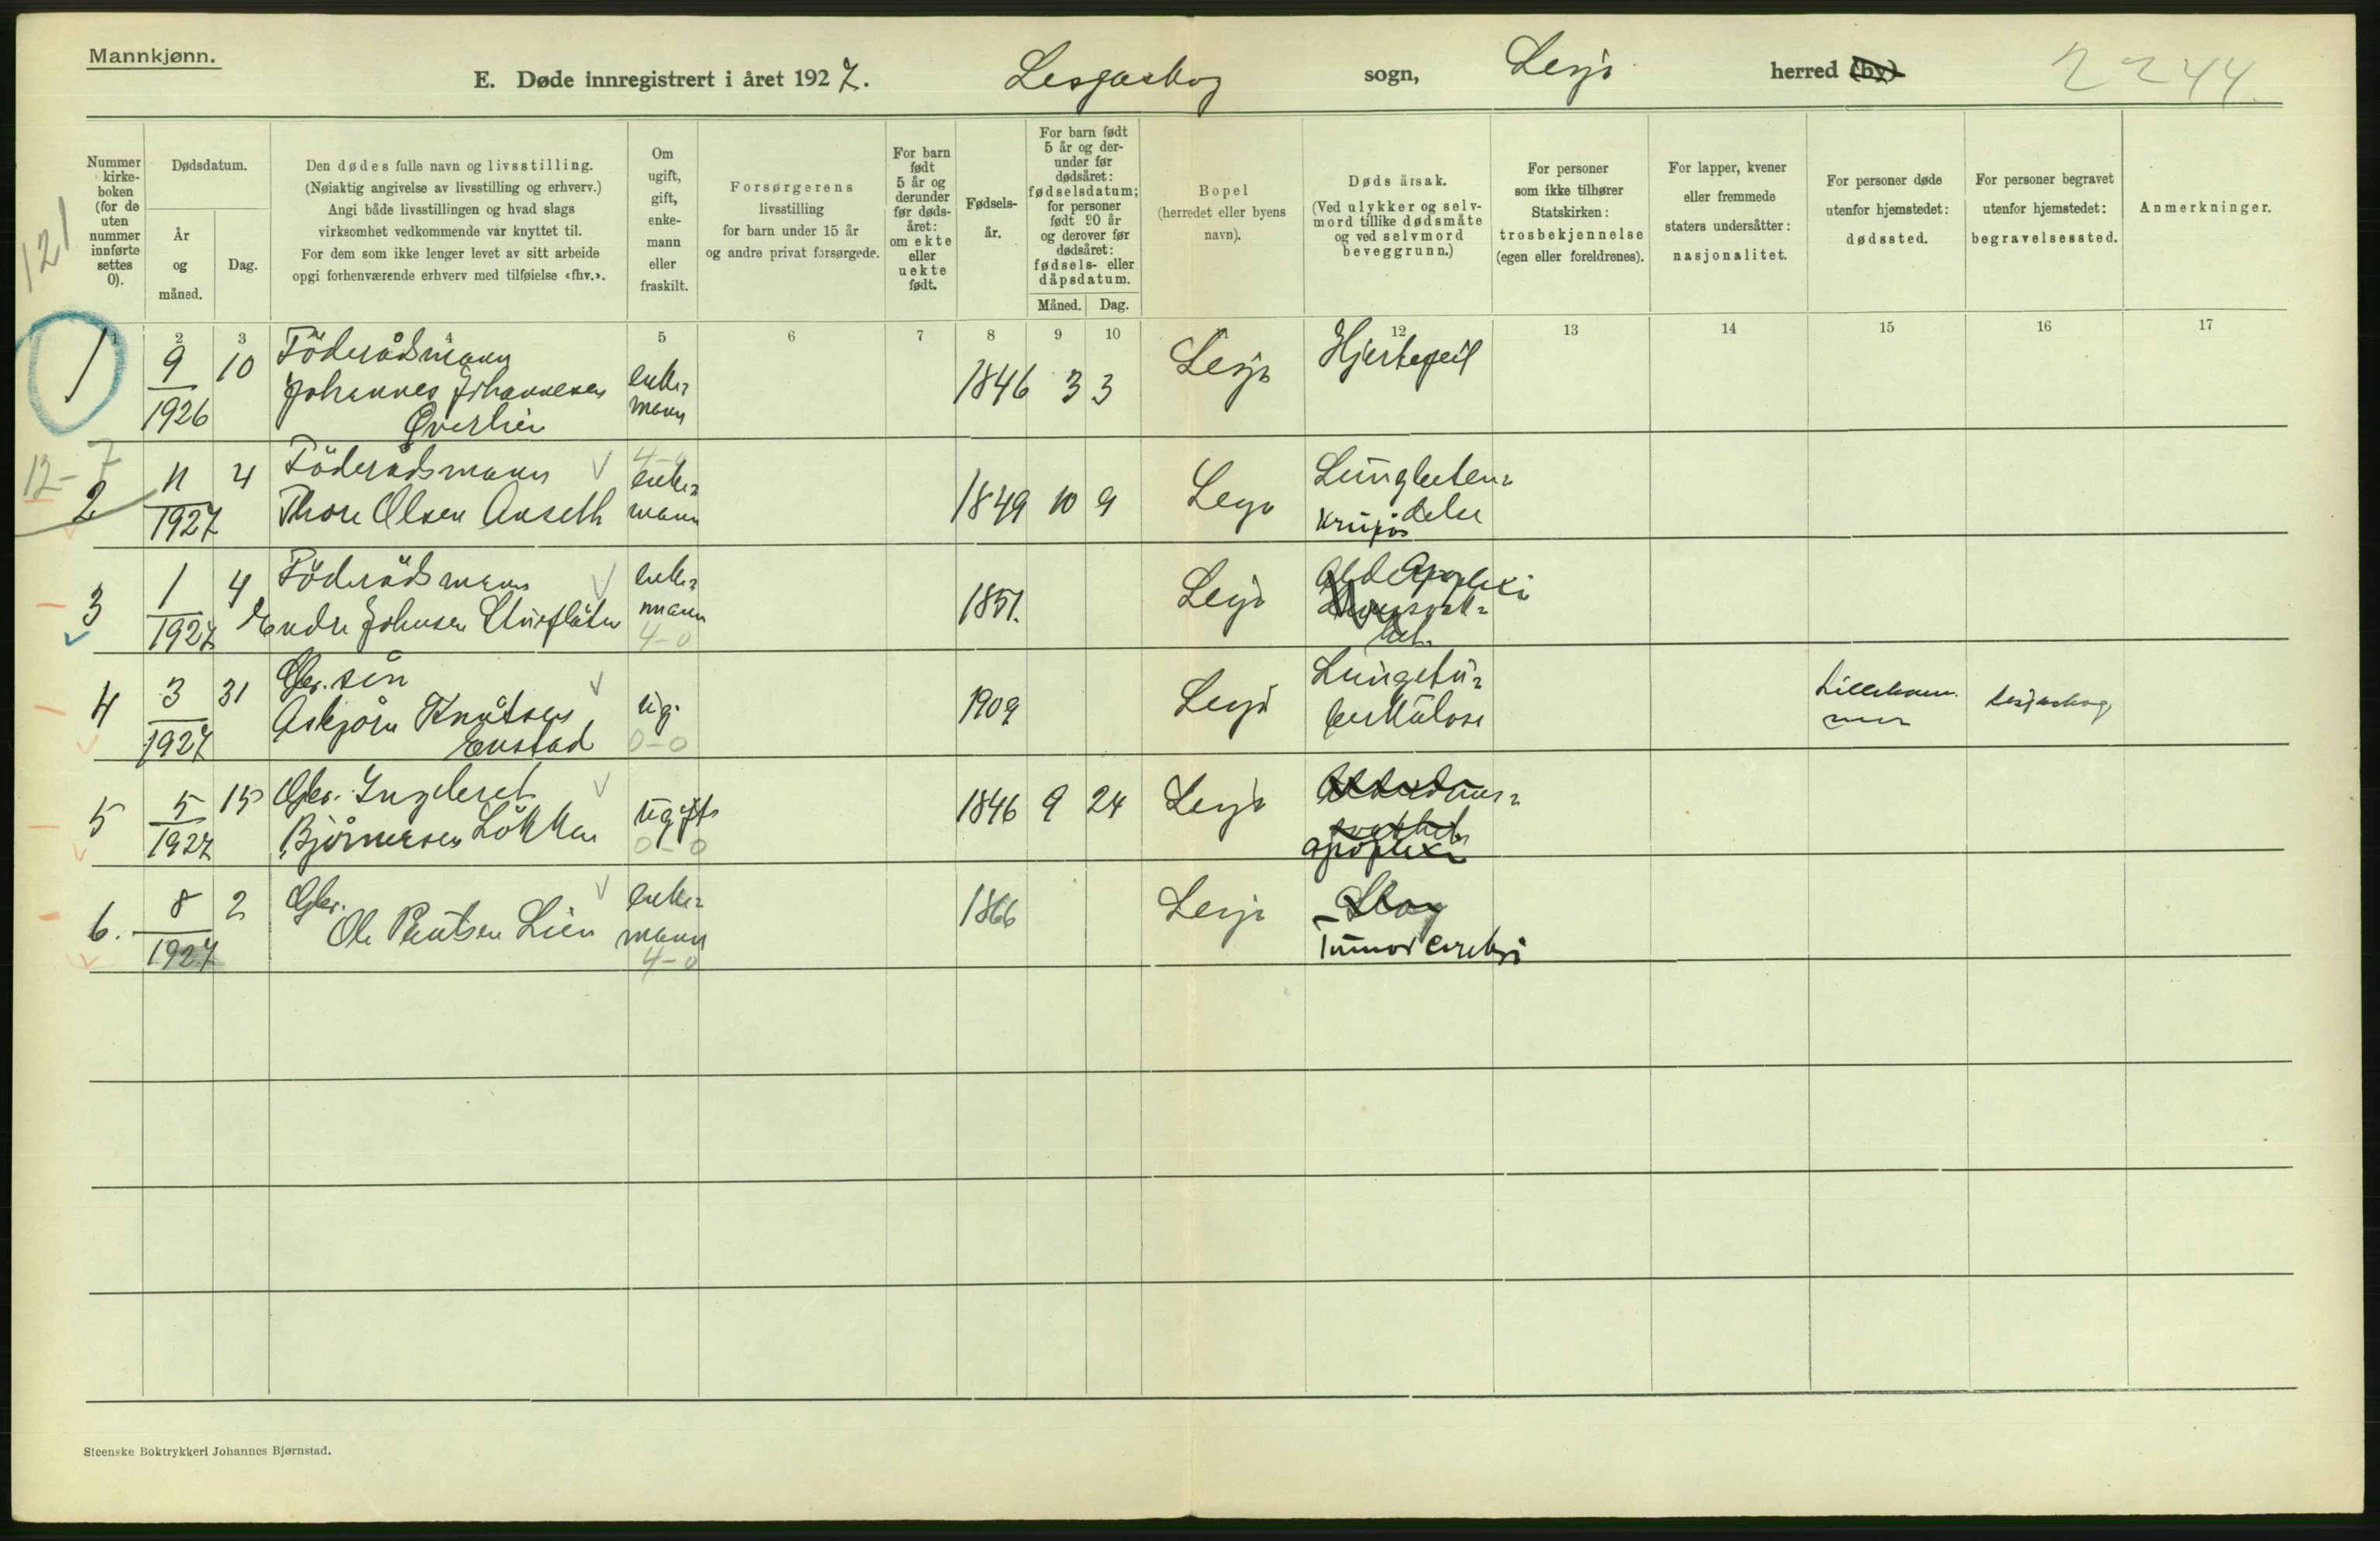 Mannkjønn.
E. Døde innregistrert i året 1927. Lesjaskog sogn, Lesja herred (by)
2244
121
Nummer
kirke-
boken
(for de
uten
nummer
innførte
settes
0).
Dødsdatum.
År
og
måned.
Dag.
Den dødes fulle navn og livsstilling.
(Nøiaktig angivelse av livsstilling og erhverv.)
Angi både livsstillingen og hvad slags
virksomhet vedkommende var knyttet til.
For dem som ikke lenger levet av sitt arbeide
opgi forhenværende erhverv med tilføielse «fhv.».
Om
ugift,
gift,
enke-
mann
eller
fraskilt.
Forsørgerens
livsstilling
for barn under 15 år
og andre privat forsørgede.
For barn
født
5 år og
derunder
før døds-
året:
om ekte
eller
uekte
født.
Fødsels-
år.
For barn født
5 år og der-
under før
dødsåret:
fødselsdatum;
for personer
født 90 år
og derover før
dødsåret:
fødsels- eller
dåpsdatum.
Måned. Dag.
Bopel
(herredet eller byens
navn).
Døds årsak.
(Ved ulykker og selv-
mord tillike dødsmåte
og ved selvmord
beveggrunn.)
For personer
som ikke tilhører
Statskirken:
trosbekjennelse
(egen eller foreldrenes).
For lapper, kvener
eller fremmede
staters undersåtter:
nasjonalitet.
For personer døde
utenfor hjemstedet:
dødssted.
For personer begravet
utenfor hjemstedet:
begravelsessted.
Anmerkninger.
1 2 3 4 5 6 7 8 9 10 12 13 14 15 16 17
1 9 10 Föderådsmann
1926 Johannes Johannesen
Øverlien
enke-
mann
1846 3 3 Lesja Hjertefeil
12-7
2 11 4 Föderådsmann
1927 Thore Olsen Anseth
4-0
enke-
mann
1849 10 9 Lesja Lungbeten-
delse
Krupøs
3 1 4 Föderådsmann
1927 Endre Johnsen
enke-
mann
4-0
1851. Lesja Apoplexi
4 3 31 Gbr. sön
1927 Asbjørn Knutsen
Enstad
ug.
0-0
1909 Lesja Lungetu-
berkulose
Lilleham-
mer
Lesjaskog
5 5 15 Gbr. Ingebret
1927 Björnersen Løkken
ugift
0-0
1846 9 24 Lesja Alderdoms-
svakhet
apoplexi
6. 8 2 Gbr.
1927 Ole Lien
enke-
mann
4-0
1866 Lesja Slag
Tumor cerebri
Steenske Boktrykkeri Johannes Bjørnstad.